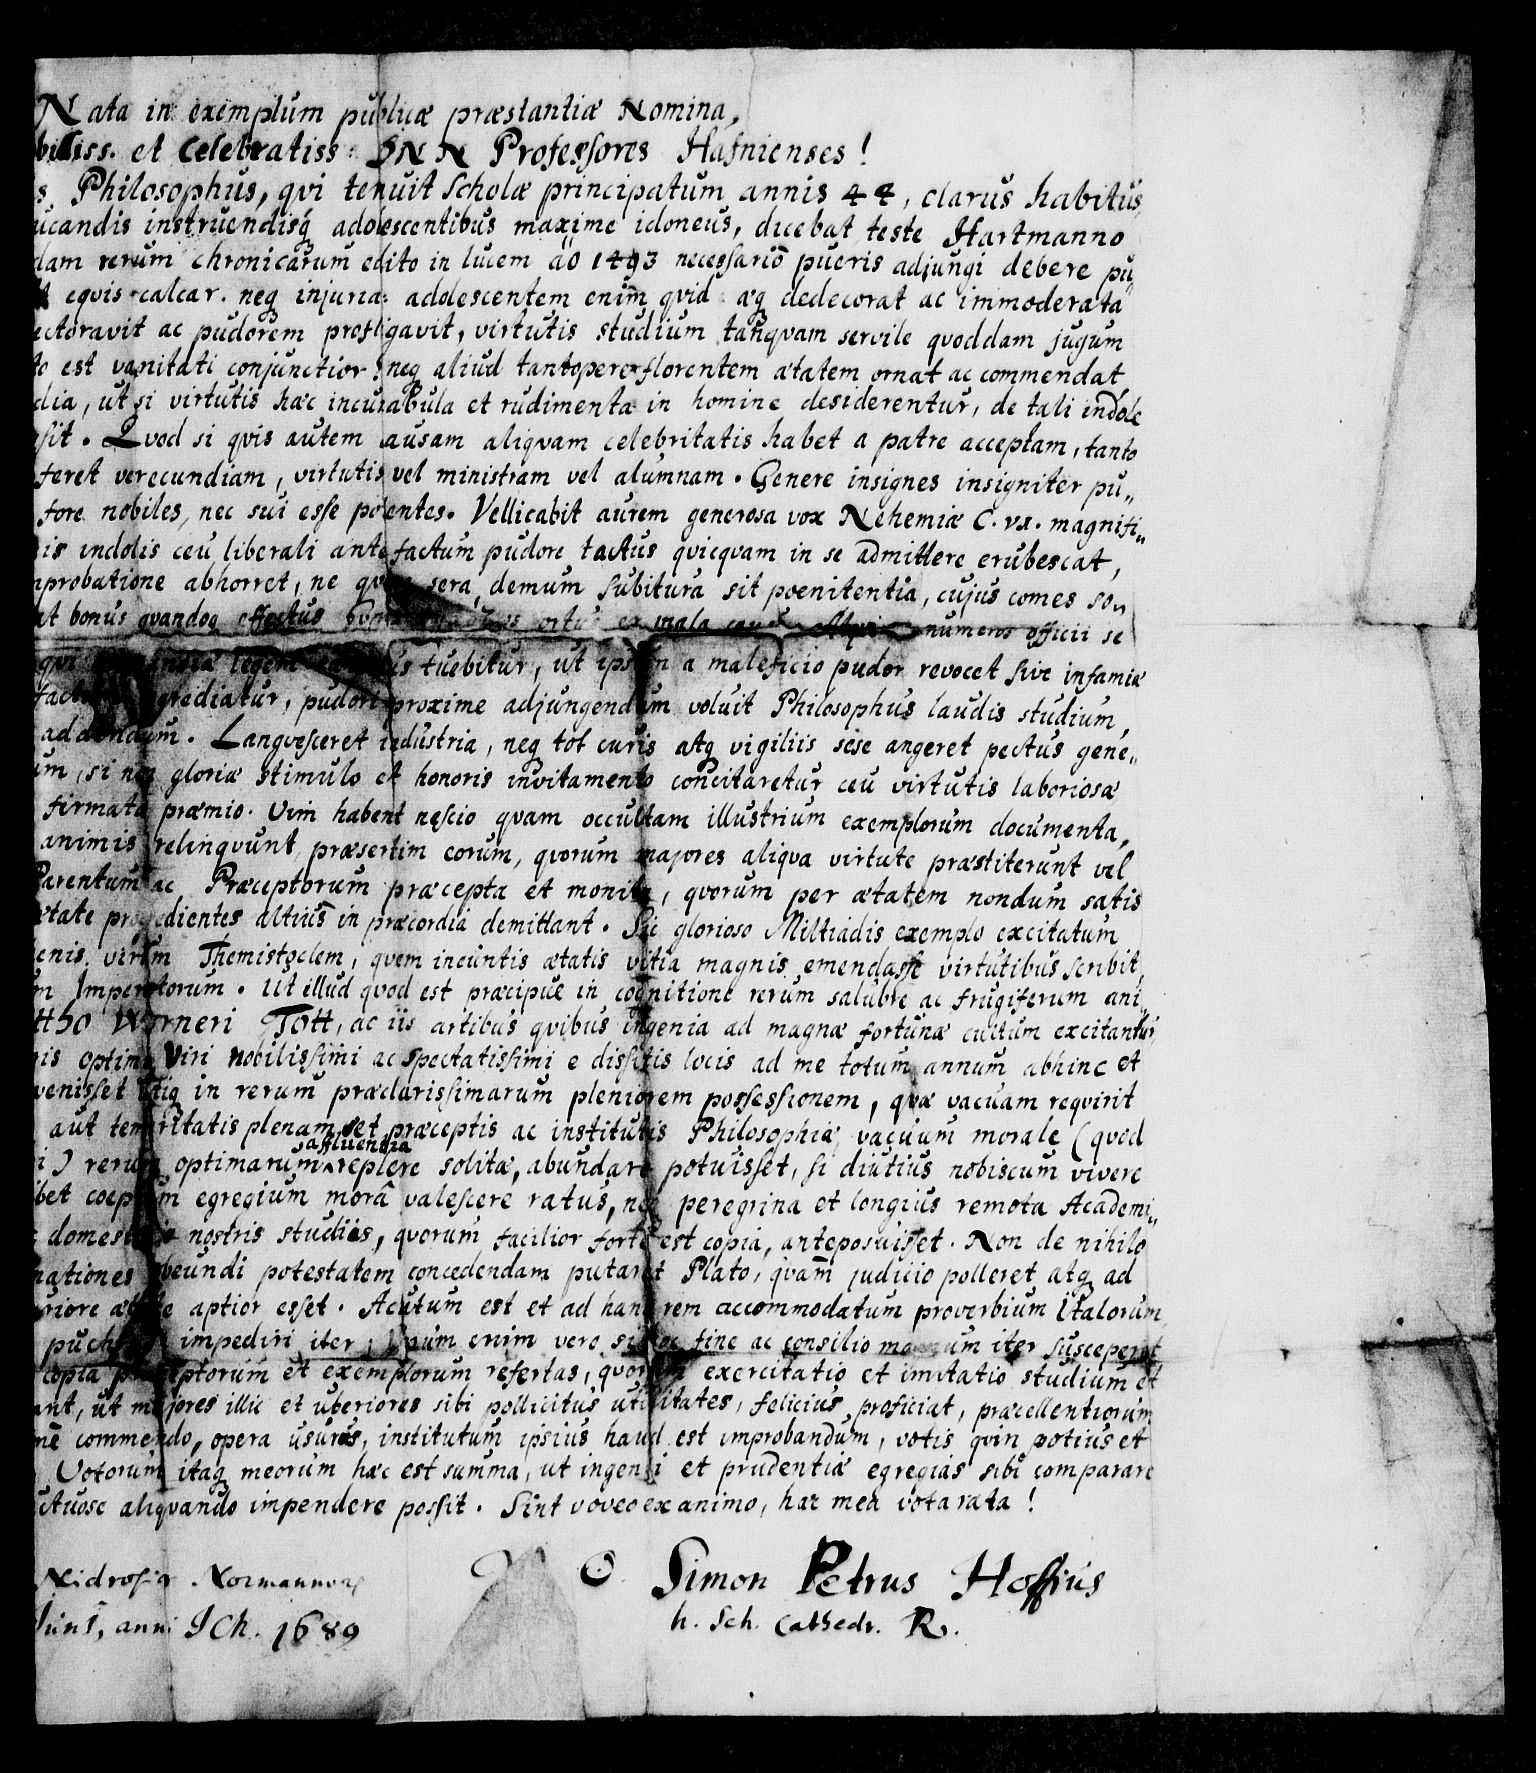 Nata in exemplum publicæ præstantiæ Nomina,
biliss. et Celebratiss: DNN Professores Hafnienses!
s Philosophus, qvi tenuit Scholæ principatum annis 44, clarus habitus,
ucandis instruendisq adolescentibus maxime idoneus, dicebat teste Hartmanno
dam rerum chronicarum edito in lucem aõ 1493 necessariò pueris adjungi debere pu„
eqvis calcar. neq injuria: adolescentem enim qvid æq dedecorat ac immoderata
ectoravit ac pudorem profligavit, virtutis studium tanqvam servile qvoddam jugum
to est vanitati conjunctior; neq aliud tantopere florentem ætatem ornat ac commendat
dia, ut si virtutis hæc incunabula et rudimenta in homine desiderentur, de tali indole
sit. Qvod si qvis autem causam aliqvam celebritatis habet a patre acceptam, tanto
feret verecundiam, virtutis vel ministram vel alumnam. Genere insignes insigniter pu„
fore nobiles, nec sui esse potentes. Vellicabit aurem generosa vox Nehemiæ C. vi. magnifi„
is indolis ceu liberali ante factum pudore tactus qvicqvam in se admittere erubescat,
mprobatione abhorret, ne sera demum subitura sit poenitentia, cujus comes so„
at bonus qvandoq effectus ortus ex mala numeros officii se
qvi legem tuebitur, ut ipsum a maleficio pudor revocet sive infamiæ
grediatur, pudori proxime adjungendum voluit Philosophus laudis studium,
addendum. Langvesceret industria, neq tot curis atq vigiliis sese angeret pectus gene„
um, si non gloriæ stimulo et honoris invitamento concitaretur ceu virtutis laboriosæ
firmato præmio. Vim habent nescio qvam occultam illustrium exemplorum documenta,
animis relinqvunt, præsertim eorum, qvorum majores aliqva virtute præstiterunt vel
Parentum ac Præceptorum præcepta et monita, qvorum per ætatem nondum satis
ætate progredientes altius in præcordia demittant. Sic glorioso Miltiadis exemplo excitatum
enis virum Themistoclem, qvem ineuntis ætatis vitia magnis emendasse virtutibus scribit
m Imperatorum. Ut illud qvod est præcipue in cognitione rerum salubre ac frugiferum ani„
tto Werneri Tott, ac iis artibus qvibus ingenia ad magnæ fortunæ cultum excitantur,
is optimi Viri nobilissimi ac spectatissimi e dissitis locis ad me totum annum abhinc et
venisset utiq in rerum præclarissimarum pleniorem possessionem, qvæ vacuam reqvirit
aut temeritatis plenam, et præceptis ac institutis Philosophiæ, vacuum morale (qvod
i) rerum optimarum affluentia replere solitæ, abundare potuisset, si diutius nobiscum vivere
ibet coeptum egregium morâ valescere ratus, nec peregrina et longius remota Academi„
domesticis nostris studiis, qvorum facilior forte est copia, anteposuisset. Non de nihilo
nationes obeundi potestatem concedendam putaret Plato, qvam judicio polleret atq ad
riore ætate aptior esset. Acutum est et ad hanc rem accommodatum proverbium Italorum
impediri iter; Ipsum enim vero sine ac consilio iter susceperit
copia præceptorum et exemplorum refertas, qvorum exercitatio et imitatio studium et
ant, ut majores illic et uberiores sibi pollicitus utilitates, felicius proficiat, præcellentiorum
me commendo, opera usurus, institutum ipsius haud est improbandum, votis qvin potius et
Votorum itaq meorum hæc est summa, ut ingenii et prudentiæ egregias sibi comparare
ctuose aliqvando impendere possit. Sint voveo ex animo, hæc mea vota rata!
Nidrosiæ Normannor
Junî, anni ICh. 1689
Simon Petrus Hoffius
h. Sch. Cathedr. R.